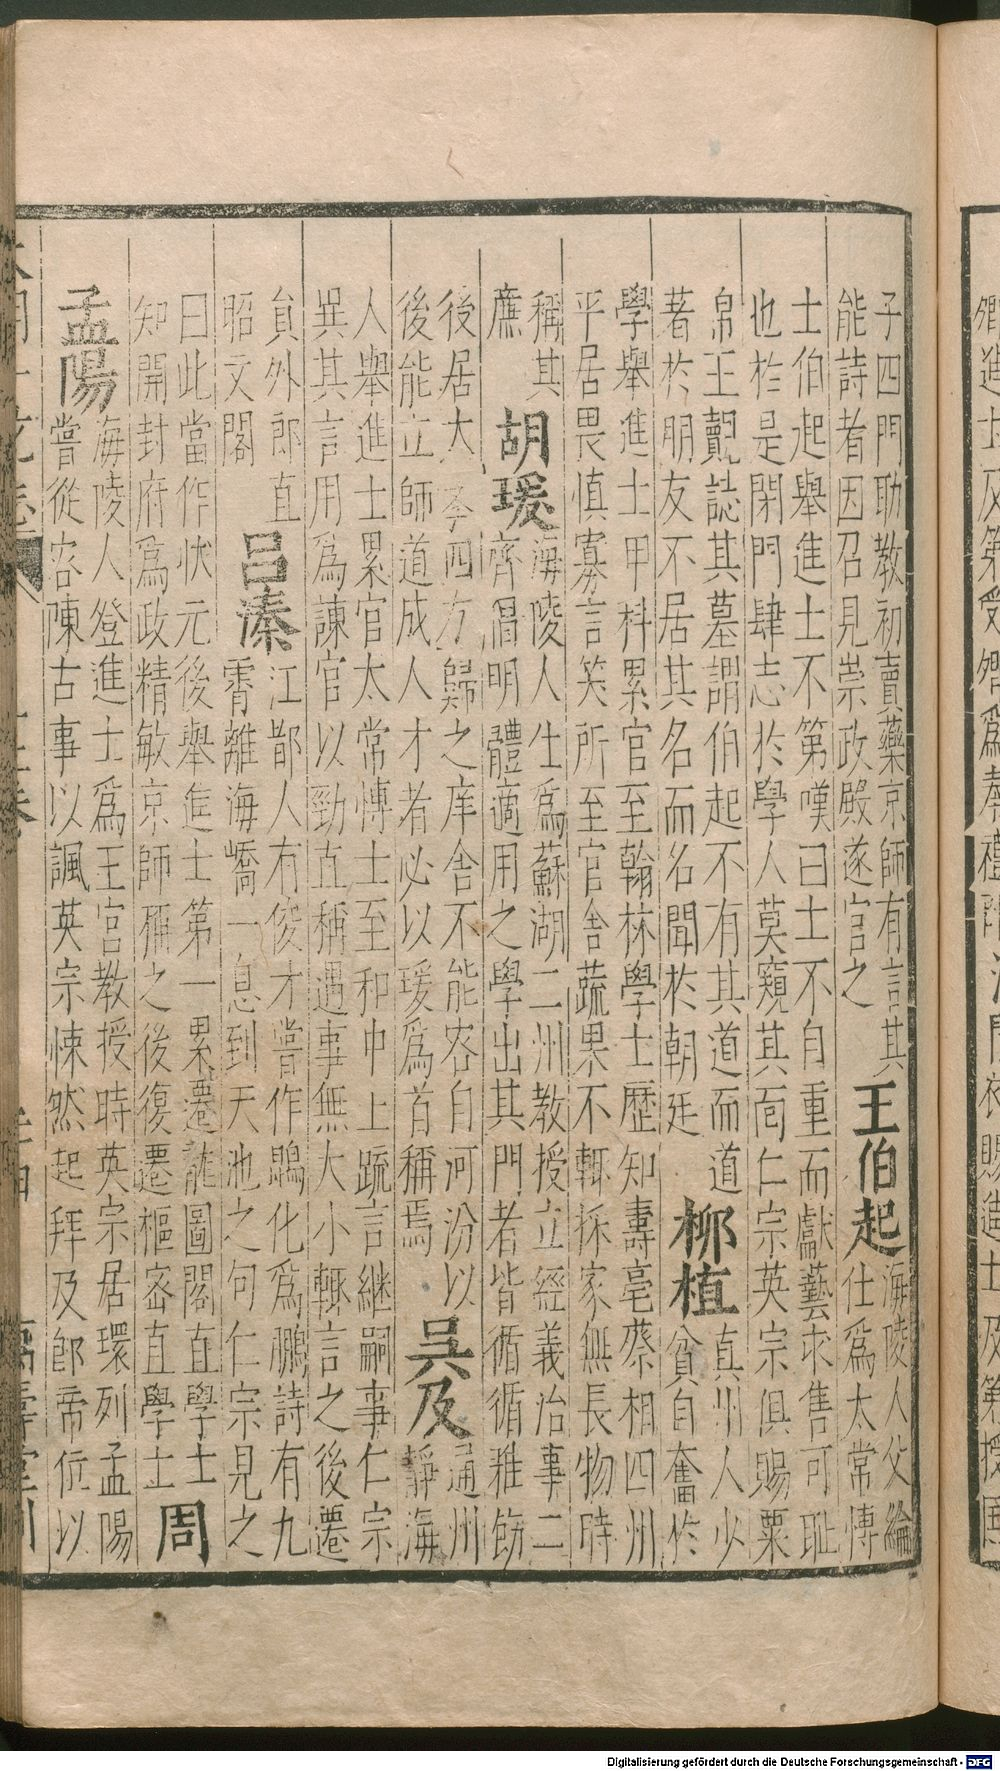 子四門助教初賣藥京師有言其
能詩者因召見崇政殿遂官之
王伯起
海陵人父綸
仕爲太常博
士伯起舉進士不第嘆曰士不自重而獻藝求售可耻
也於是閉門肆志於學人莫窺其面仁宗英宗俱賜粟
帛王覿誌其墓謂伯起不有其道而道
著於朋友不居其名而名聞於朝廷
柳植
真州人少
貧自奮於
學舉進士甲科累官至翰林學士歷知壽亳蔡相四州
平居畏慎寡言笑所至官舍蔬果不輒採家無長物時
稱其
廉
胡瑗
海陵人生爲蘇湖二州教授立經義治事二
齊倡明體適用之學出其門者皆循循雅飭
後居太斈四方歸之庠舍不能容自河汾以
後能立師道成人才者必以瑗爲首稱焉
吳及
通州
靜海
人舉進士累官太常博士至和中上疏言継嗣事仁宗
異其言用爲諫官以勁直稱遇事無大小輒言之後遷
貟外郎直
昭文閣
呂溱
江都人有俊才嘗作鵾化爲鵬詩有九
霄離海嶠一息到天池之句仁宗見之
曰此當作狀元後舉進士第一累遷龍圖閣直學士
知開封府爲政精敏京師稱之後復遷樞密直學士
周
孟陽
海陵人登進士爲王宮教授時英宗居環列孟陽
嘗從容陳古事以諷英宗悚然起拜及卽帝位以
Digitalisierung gefördert durch die Deutsche Forschungsgemeinschaft - DFG